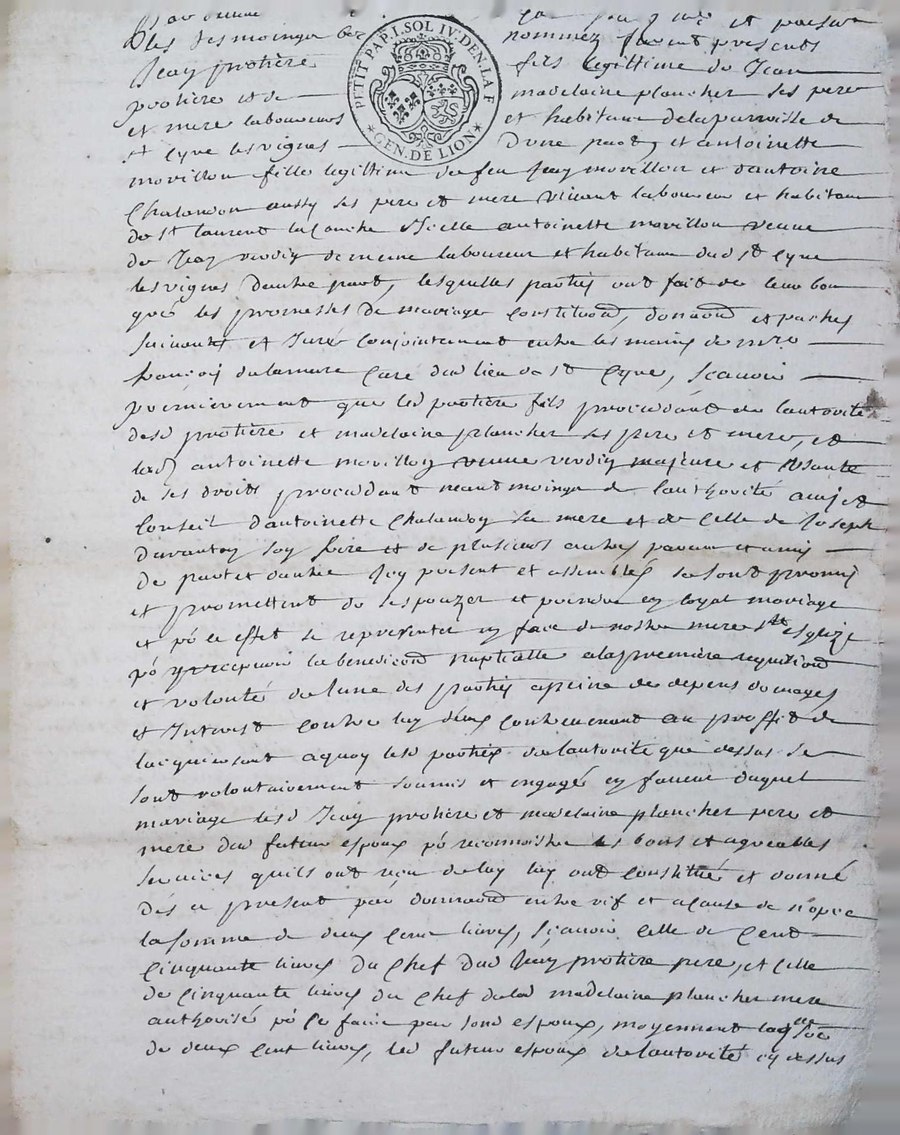 PETIT PAP. 1. SOL IV. DEN. LA F
GEN. DE LION
et
les tesmoings nommez furent presents
Jean protiere fils legittime de Jean
protiere et de madelaine plancher ses pere
et mere laboureurs et habitans de la parroisse de
st Cyre les vignes D'une part, et antoinette
movillon fille legittime de feu Jean movillon et d'antoine
Chalandon aussy ses pere et mere vivant laboureur et habitans
de st laurent la Conche Icelle antoinette movillon veuve
de Jean verdiy de mesme laboureur et habitans dud st Cyre
les vignes d'autre part, lesquelles parties ont fait de leur bon
gré les promesses de mariage Constitution, donnaon et paches
suivants et Juré Conjointement entre les mains de mre
francois delamure Curé dud lieu de st Cyre, Scavoir
premierement que led protiere fils procedant de l'autorité
desd protiere et madelaine plancher ses pere et mere, et
lad antoinette movillon veuve verdiy majeure et usante
de ses droits procedant neantmoings de l'authorité avis et
Conseil d'antoinette Chalandon sa mere et de Celle de Joseph
son frere et de plusieurs autres parans et amis
de part et d'autre Icy present et assemblés se sont promis
et promettent de s'espouzer et prendre en loyal mariage
et po ce effet se representer en face de nostre mere ste esglize
po y recepvoir la benediction nuptialle a la premiere requisition
et volonté de l'une des parties a peine de depens domages
et Interest contre luy deux contrevenant au proffit de
l'acquiessant a quoy lesd parties de l'autorité que dessus se
sont volontairement soumis et engagés en faveur duquel
mariage lesd Jean protiere et madelaine plancher pere et
mere dud futur espoux po reconnoistre les bons et agreables
services quils ont reçu de luy luy ont Constitué et donné
dés a present par donnaon entre vif et a Cause de nopce
la somme de deux Cent livres, Sçavoir Celle de Cent
Cinquante livres du Chef dud Jean protiere pere, et Celle
de Cinquante livres du Chef de lad madelaine plancher mere
authorisé po Ce faire par sond espoux, moyennent laqlle soe
de deux Cent livres, led futur espoux de l'autorité cy dessus